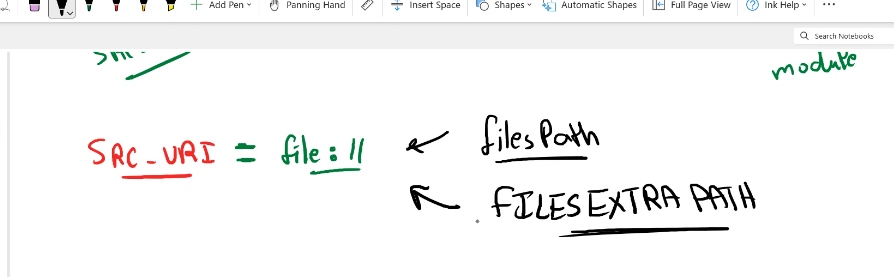 Add Pen Panning Hand Insert Space Shapes Automatic Shapes Full Page View Ink Help ...
Search Notebooks
module
SRC_URI = file:// filesPath
FILESEXTRA PATH